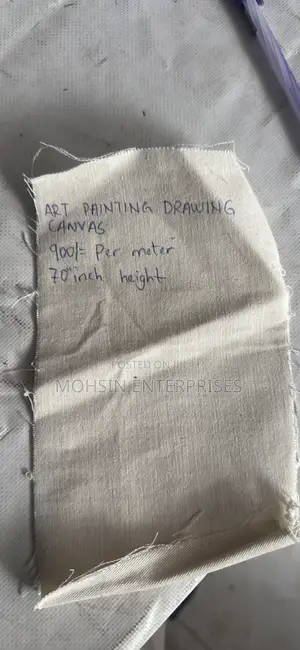 ART PAINTING DRAWING
CANVAS
900/= Per meter
70"inch height
POSTED ON
MOHSIN ENTERPRISES